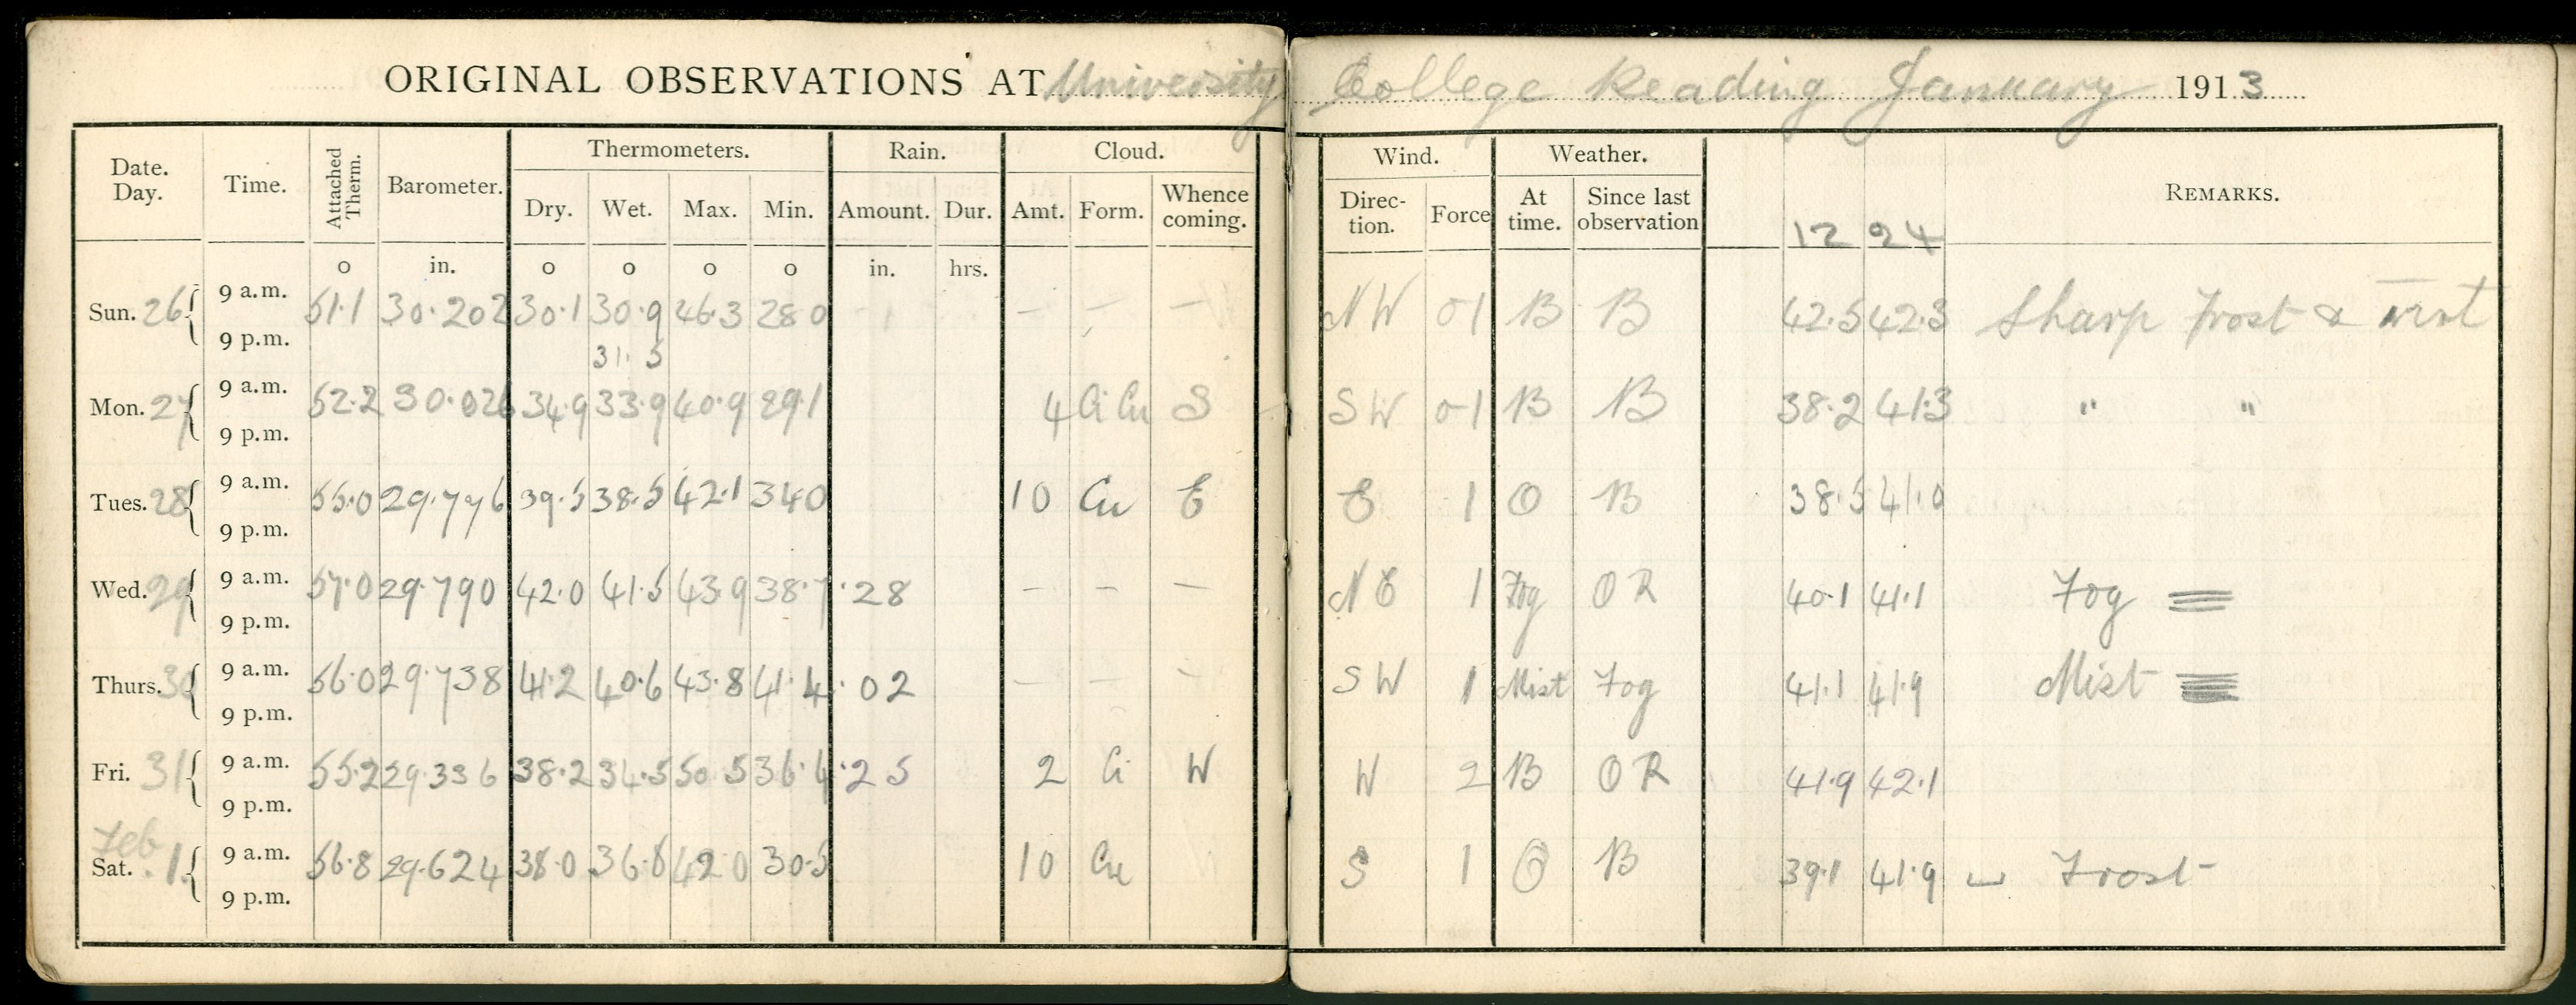 ORIGINAL OBSERVATIONS AT University College Reading January 1913
Date. Day. Time. Attached Therm. Barometer. Thermometers. Rain. Cloud. Wind. Weather. REMARKS.
Dry. Wet. Max. Min. Amount. Dur. Amt. Form. Whence coming. Direction. Force At time. Since last observation 12 24
o in. o o o o in. hrs.
Sun. 26 { 9 a.m. 51.1 30.202 30.1 30.9 46.3 28.0 — — — NW 0-1 B B 42.5 42.3 Sharp Frost &
9 p.m.
31.5
Mon. 27 { 9 a.m. 52.2 30.026 34.9 33.9 40.9 29.1 4 Ci Cu S SW 0-1 B B 38.2 41.3 " "
9 p.m.
Tues. 28 { 9 a.m. 55.0 29.776 39.5 38.5 42.1 34.0 10 Cu E E 1 O B 38.5 41.0
9 p.m.
Wed. 29 { 9 a.m. 57.0 29.790 42.0 41.5 43.9 38.7 .28 — — — NE 1 Fog OR 40.1 41.1 Fog ≡
9 p.m.
Thurs. 30 { 9 a.m. 56.0 29.738 41.2 40.6 43.8 41.4 .02 — — — SW 1 Mist Fog 41.1 41.9 Mist ≡
9 p.m.
Fri. 31 { 9 a.m. 55.2 29.336 38.2 34.5 50.5 36.4 .25 2 Ci W W 2 B OR 41.9 42.1
9 p.m.
Feb
Sat. 1. { 9 a.m. 56.8 29.624 38.0 36.8 42.0 30.5 10 Cu S 1 O B 39.1 41.9 ⌴ Frost
9 p.m.